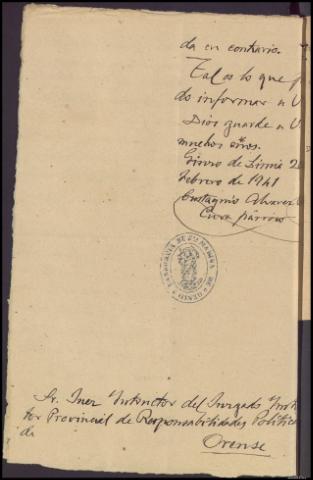 da en contrario.
Tal es lo que p
do informar a V.
Dios guarde a V.
muchos años.
Ginzo de Limia 2
Febrero de 1941
Eustaquio Alvarez
Cura párroco
PARROQUIA DE
Sr. Juez Instructor del Juzgado Inst
tor Provincial de Responsabilidades Politica
de
Orense